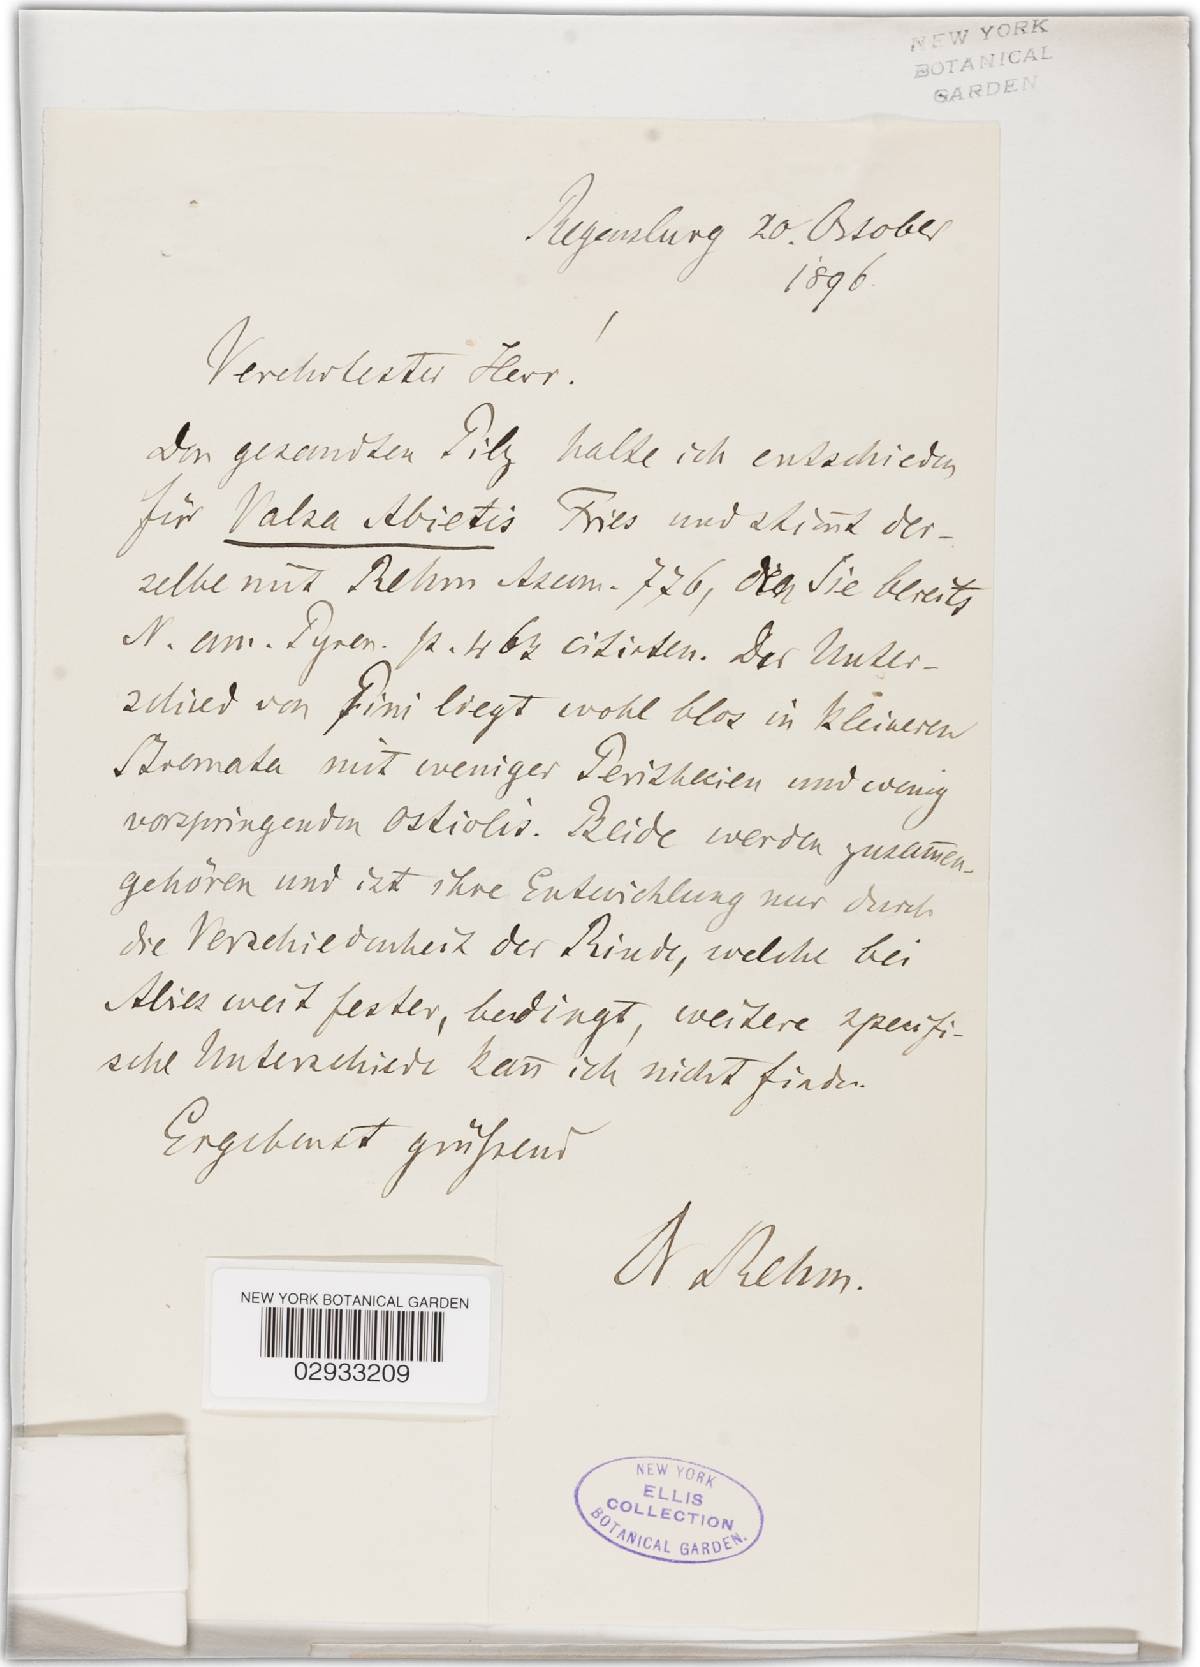 NEW YORK
BOTANICAL
GARDEN
Regensburg 20. October
1896.
Verehrtester Herr!
Den gesandten Pilz halte ich entschieden
für Valsa Abietis Fries und stim̄t der-
selbe mit Rehm Ascom. 776, den Sie bereits
N. am. Pyren. p. 463 citirten. Der Unter-
schied von Pini liegt wohl blos in kleineren
Stromata mit weniger Perithecien und wenig
vorspringenden Ostiolis. Beide werden zusam̄en-
gehören und ist ihre Entwicklung nur durch
die Verschiedenheit der Rinde, welche bei
Abies weit fester, bedingt, weitere specifi-
sche Unterschiede kan̄ ich nicht finden.
Ergebenst grüßend
Rehm.
NEW YORK BOTANICAL GARDEN
02933209
NEW YORK
ELLIS
COLLECTION
BOTANICAL GARDEN.